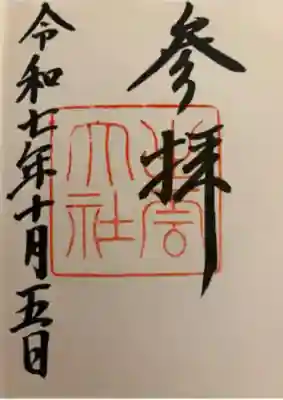 参拝
出雲大社
令和七年十月五日